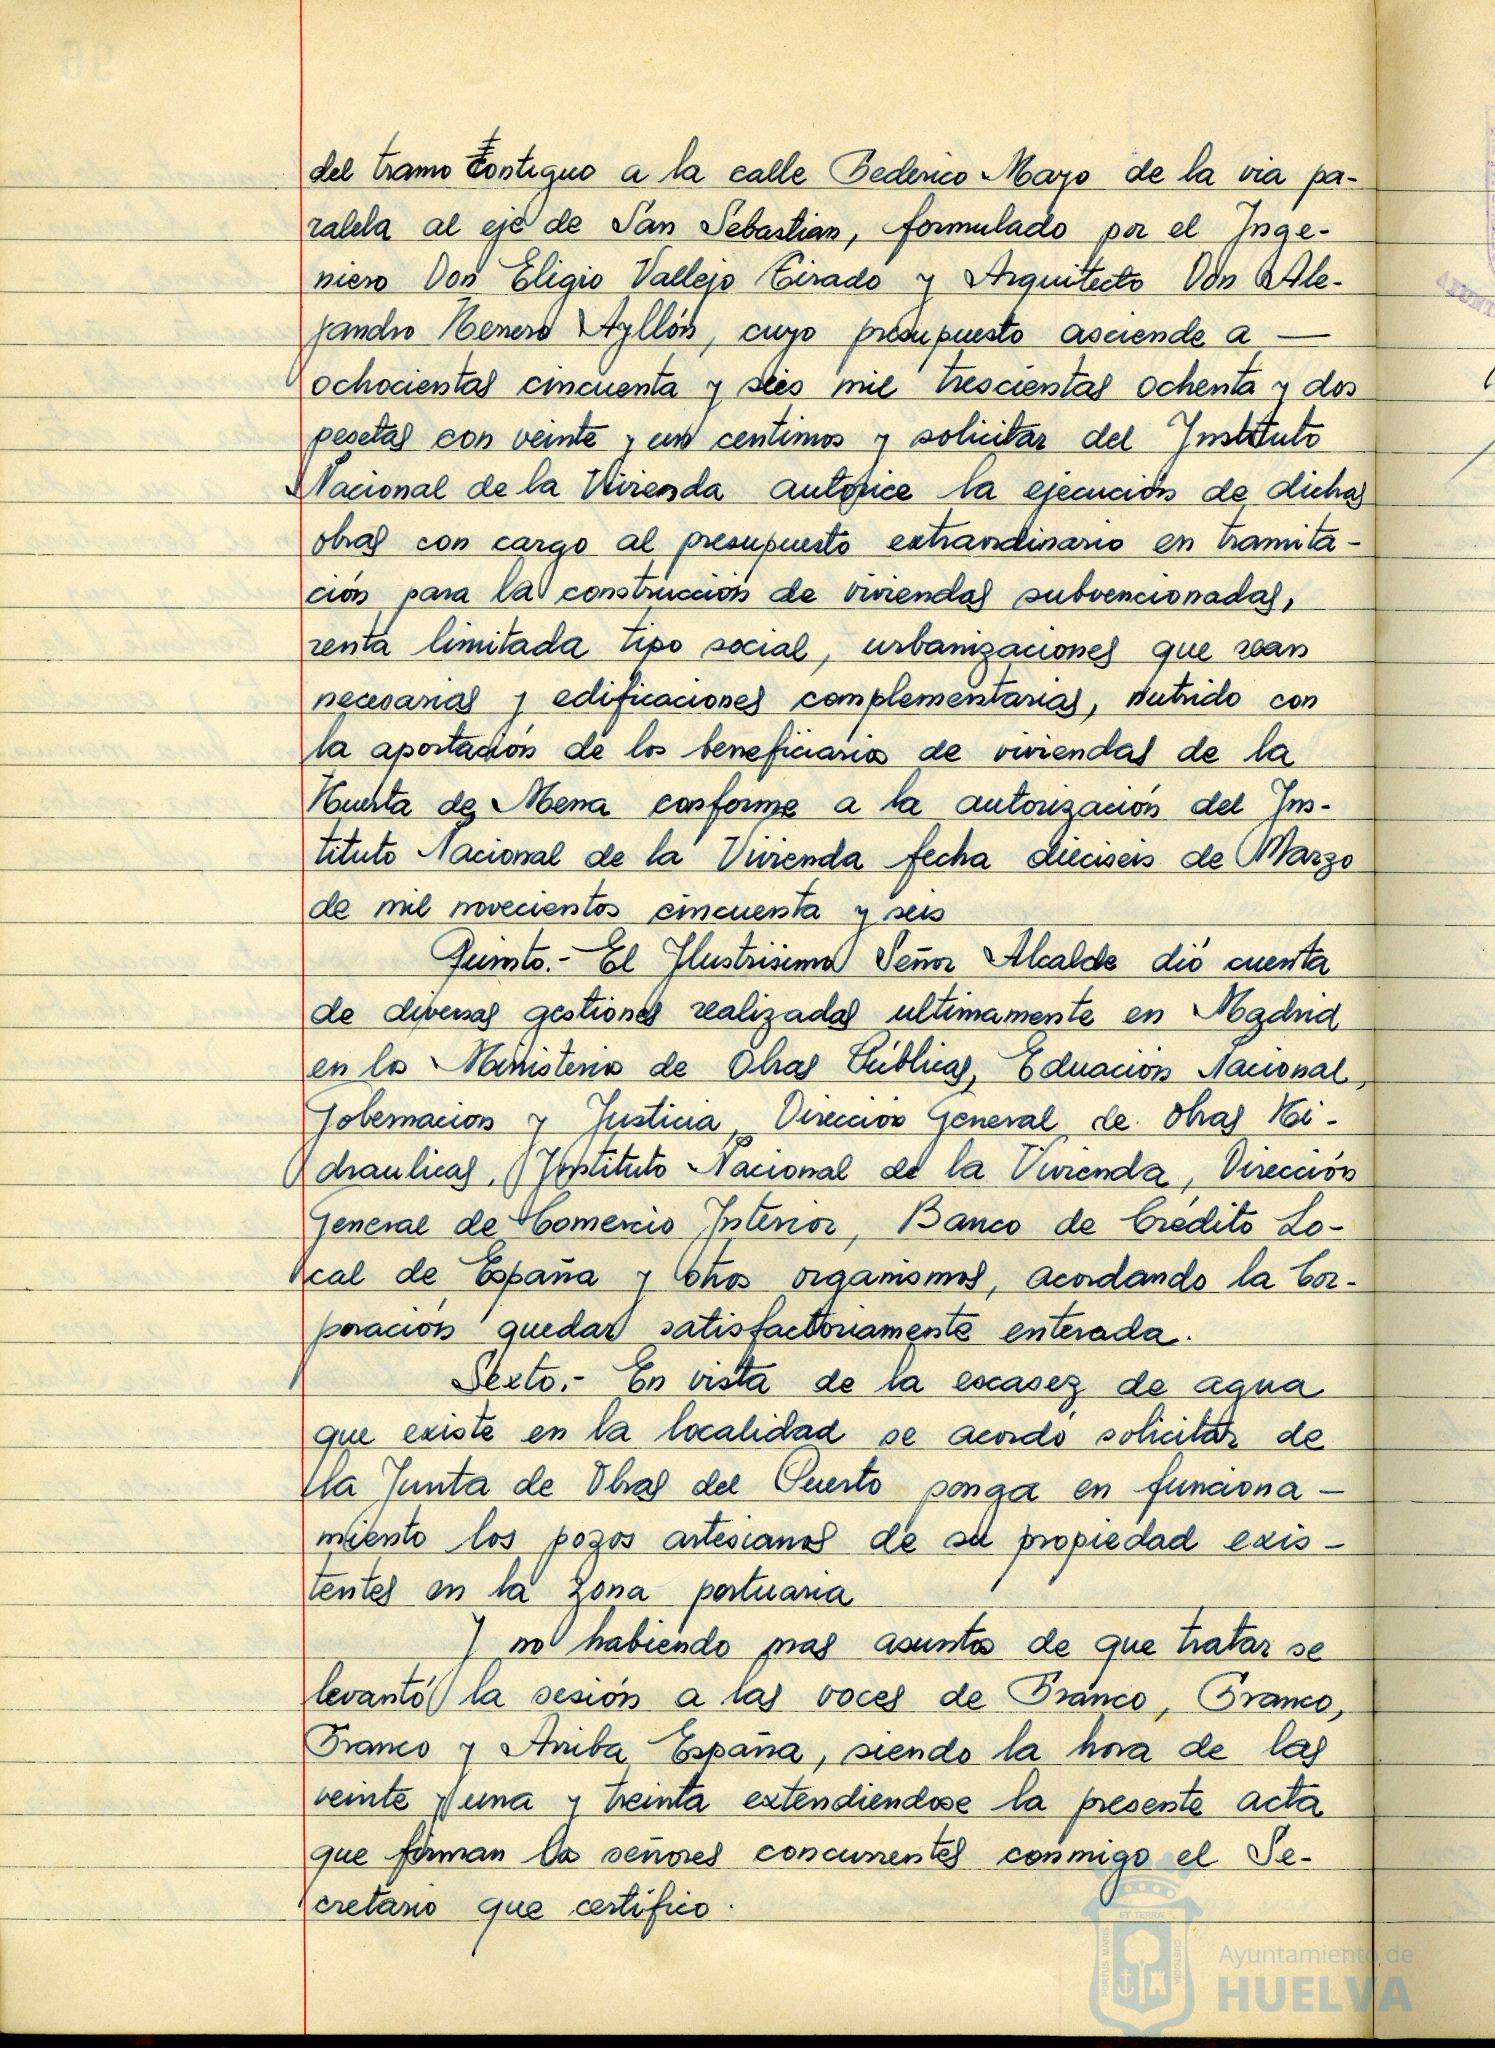 del tramo contiguo a la calle Federico Mayo de la via pa-
ralela al eje de San Sebastian, formulado por el Inge-
niero Don Eligio Vallejo Tirado y Arquitecto Don Ale-
jandro Herrero Ayllón, cuyo presupuesto asciende a —
ochocientas cincuenta y seis mil trescientas ochenta y dos
pesetas con veinte y un centimos y solicitar del Instituto
Nacional de la Vivienda autorice la ejecución de dichas
obras con cargo al presupuesto extraordinario en tramita-
ción para la construcción de viviendas subvencionadas,
renta limitada tipo social, urbanizaciones que sean
necesarias y edificaciones complementarias, nutrido con
la aportación de los beneficiarios de viviendas de la
Huerta de Mena conforme a la autorización del Ins-
tituto Nacional de la Vivienda fecha dieciseis de Marzo
de mil novecientos cincuenta y seis
Quinto.- El Ilustrisimo Señor Alcalde dió cuenta
de diversas gestiones realizadas ultimamente en Madrid
en los Ministerios de Obras Públicas, Eduación Nacional,
Gobernacion y Justicia, Direccion General de Obras Hi-
draulicas, Instituto Nacional de la Vivienda, Dirección
General de Comercio Interior, Banco de Crédito Lo-
cal de España y otros organismos, acordando la Cor-
poración quedar satisfactoriamente enterada.
Sexto.- En vista de la escasez de agua
que existe en la localidad se acordó solicitar de
la Junta de Obras del Puerto ponga en funciona-
miento los pozos artesianos de su propiedad exis-
tentes en la zona portuaria
Y no habiendo mas asuntos de que tratar se
levantó la sesión a las voces de Franco, Franco,
Franco y Arriba España, siendo la hora de las
veinte y una y treinta extendiendose la presente acta
que firman los señores concurrentes conmigo el Se-
cretario que certifico.
PORTUS MARIS ET TERRAE CUSTODIA
Ayuntamiento de
HUELVA